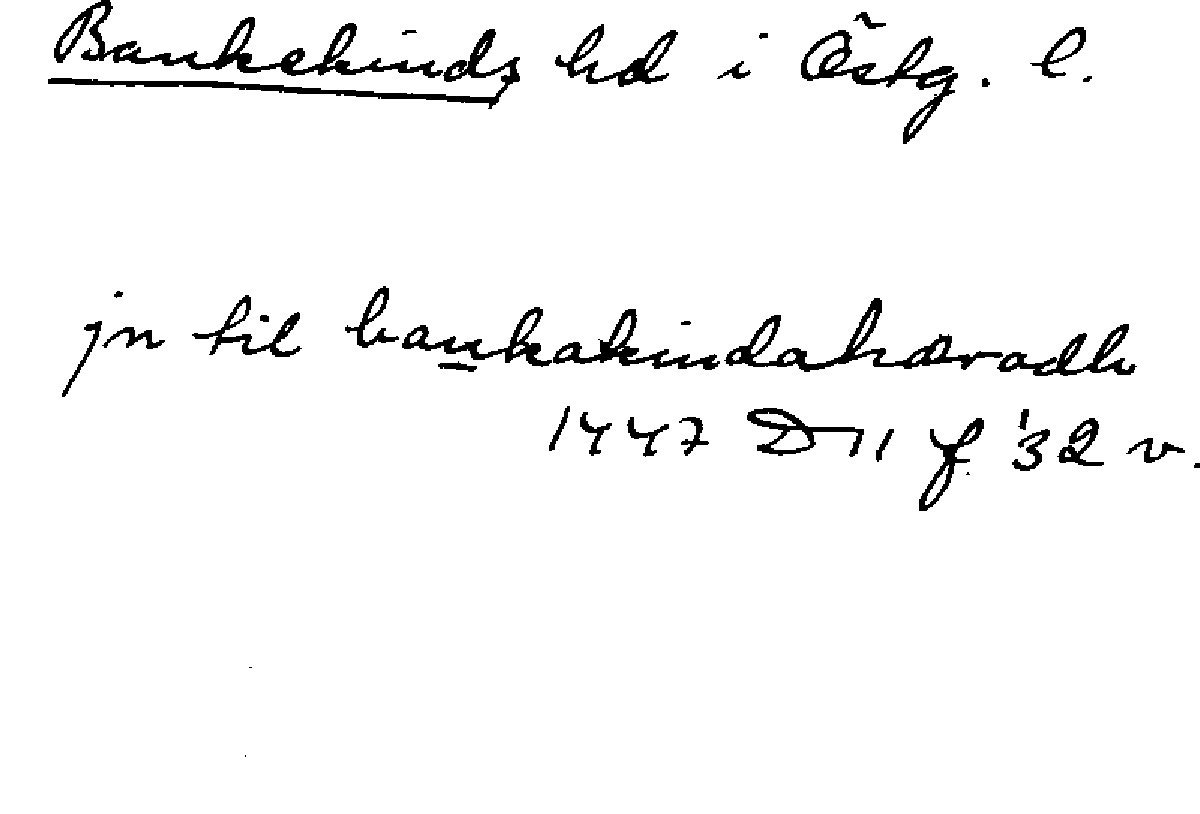 Bankekinds hd i Östg. l.
jn til bankakindahæradh
1447 D 11 f. 32 v.